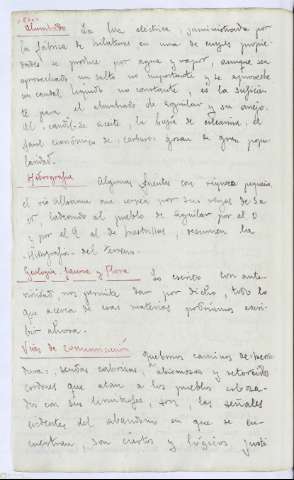 Alumbrado La luz electrica, suministrada por
la fabrica de hilaturas en una de cuyas propie-
dades se produce por agua y vapor, aunque sea
aprovechado un salto no importante y se aproveche
un caudal liquido no constante, es la suficien-
te para el alumbrado de Aguilar y su anejo.
El candil de aceite, la bujia de estearina, el
farol económico de carburo gozan de gran popu-
laridad.
Hidrografia Algunas fuentes con riqueza pequeña
el rio Alhama que corre por sus
ladeando al pueblo de Aguilar por el O
y por el E al de Inestrillas, resumen la
Hidrografia del terreno.
Geologia, fauna y Flora Lo escrito con ante-
rioridad, nos permite dar por dicho, todo lo
que acerca de esas materias podriamos escri-
bir ahora.
Vias de comunicación quebrados caminos de herra-
dura; sendas caloriosas, y retorcidos
cordones que atan a los pueblos enlaza-
dos con sus limitrofes, son, las señales
evidentes del abandono en que se en-
cuentran, son ciertos y lógicos justi